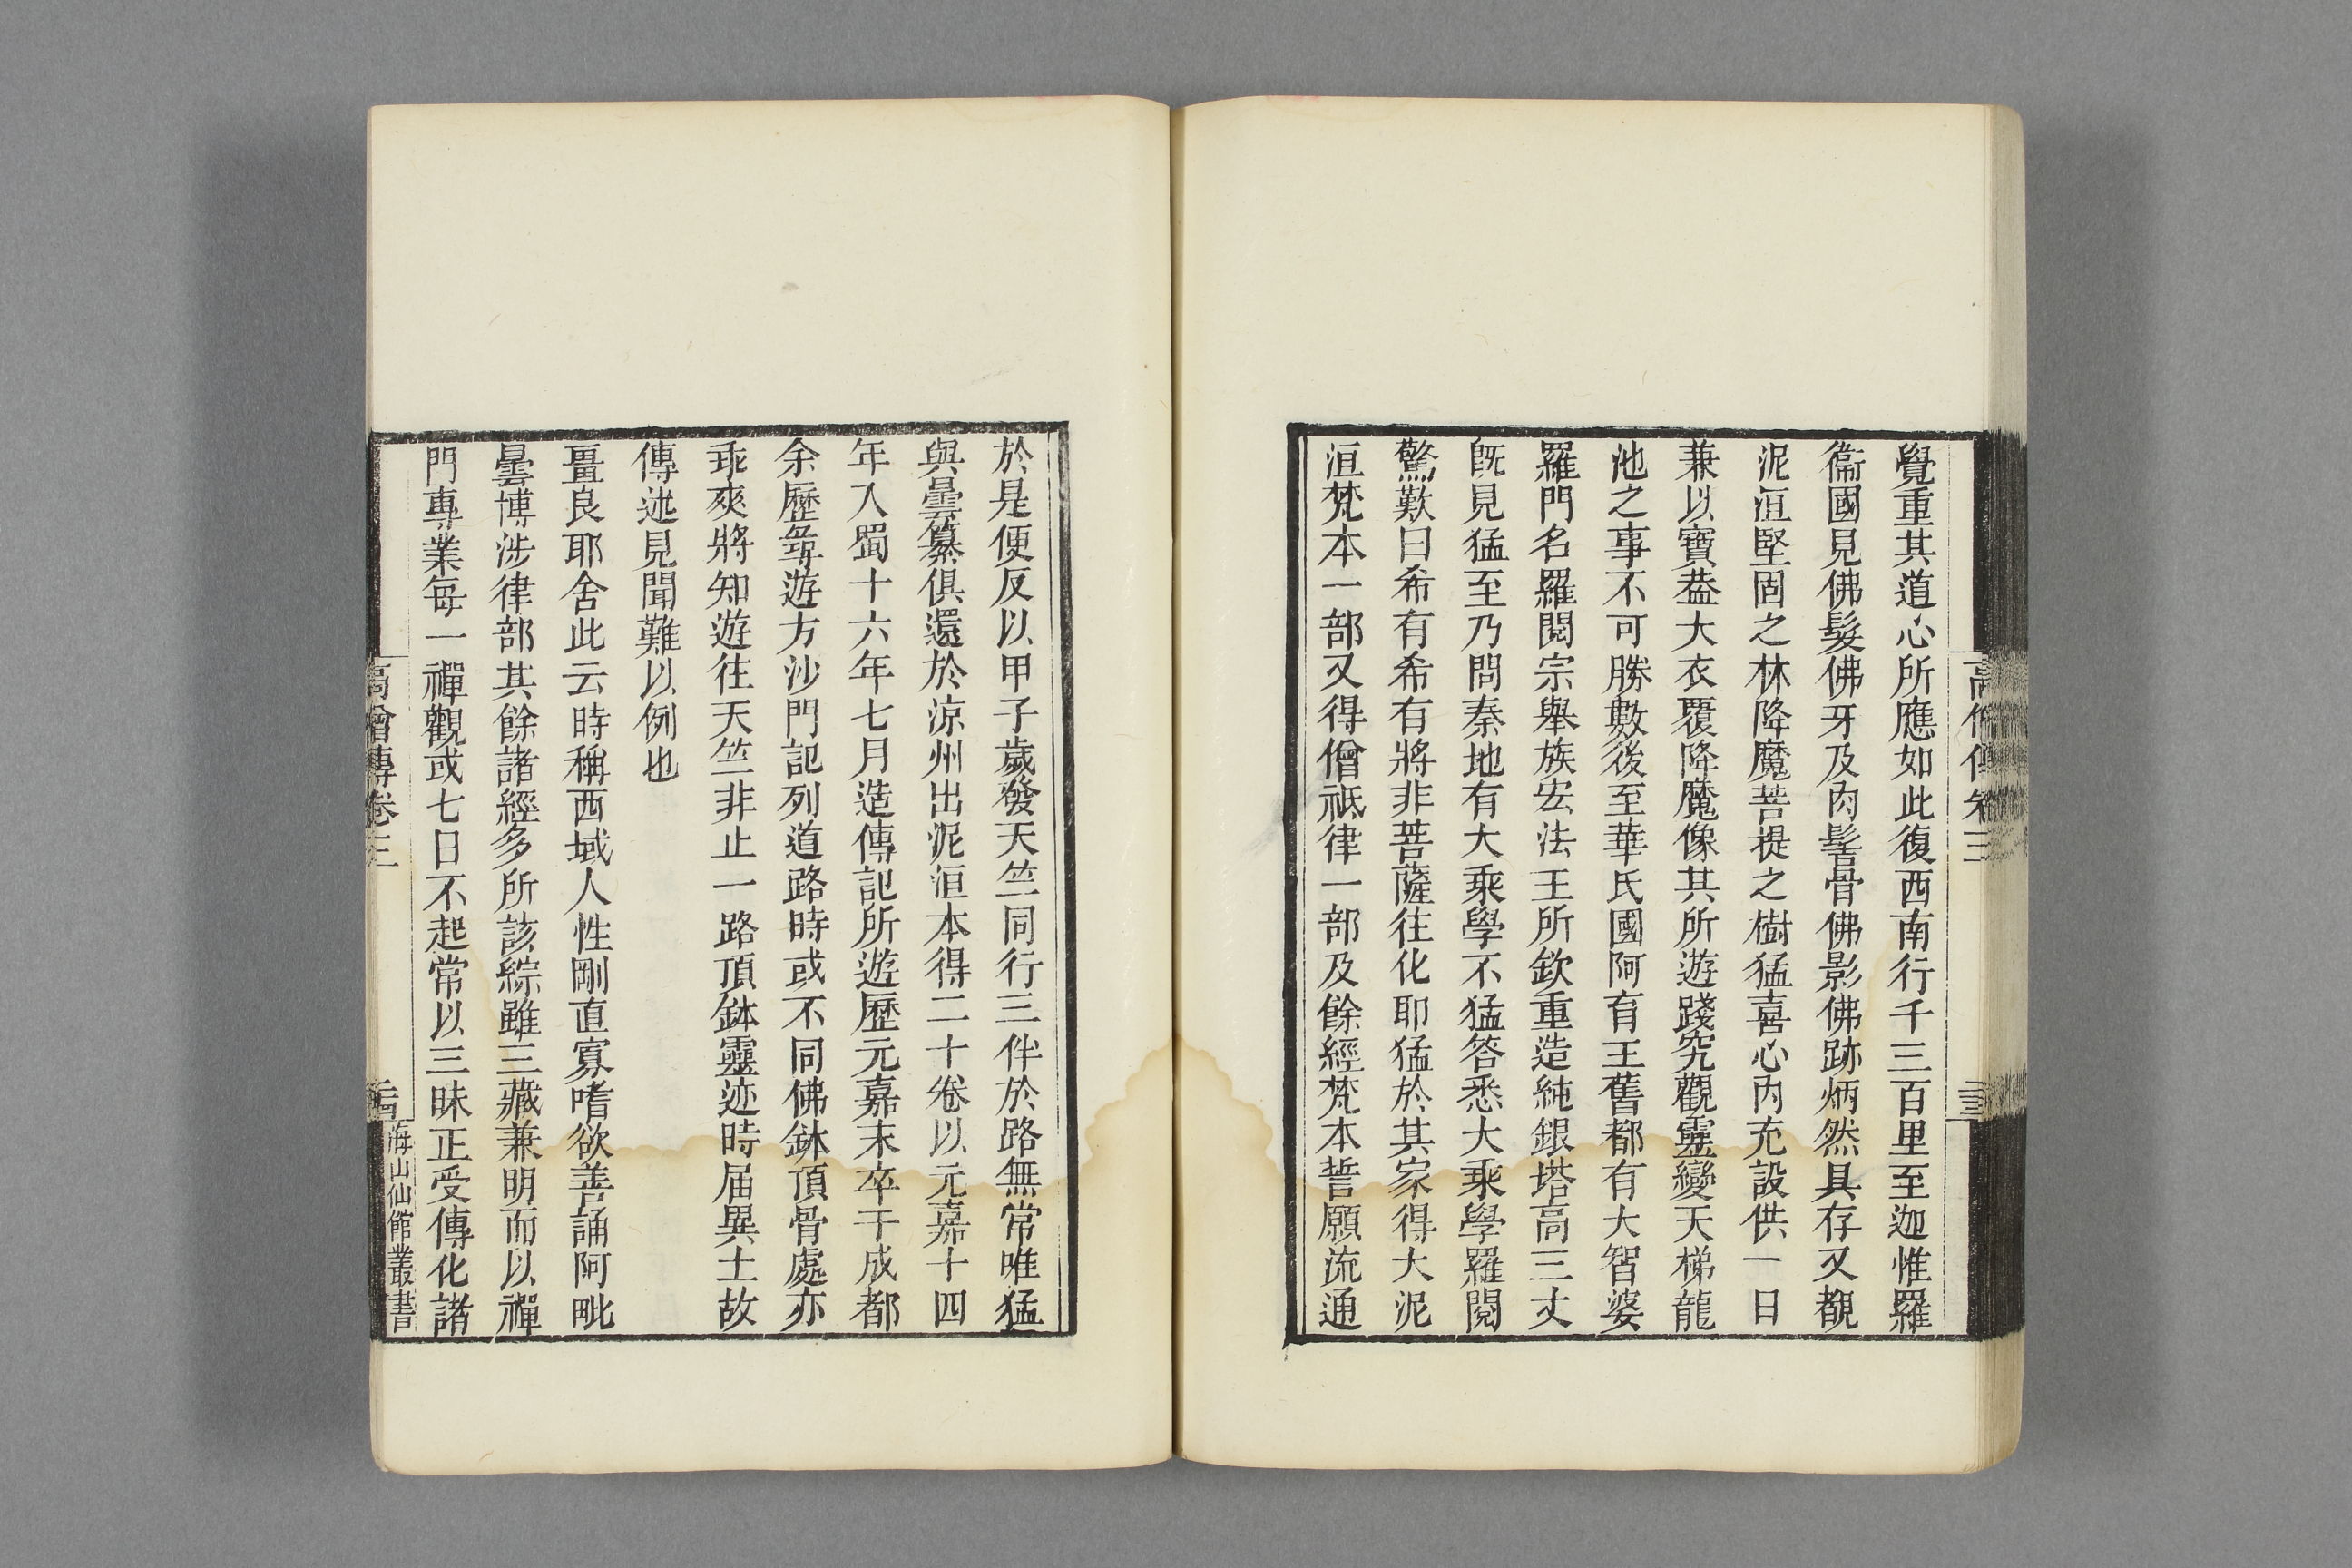 高僧傳卷三
覺重其道心所應如此復西南行千三百里至迦惟羅
衞國見佛髮佛牙及肉髻骨佛影佛跡炳然具存又覩
泥洹堅固之林降魔菩提之樹猛喜心內充設供一日
兼以寶葢大衣覆降魔像其所遊踐究觀靈變天梯龍
池之事不可勝數後至華氏國阿育王舊都有大智婆
羅門名羅閱宗舉族宏法王所欽重造純銀塔高三丈
旣見猛至乃問秦地有大乘學不猛答悉大乘學羅閱
驚歎曰希有希有將非菩薩往化耶猛於其家得大泥
洹梵本一部又得僧祇律一部及餘經梵本誓願流通
於是便反以甲子歲發天竺同行三伴於路無常唯猛
與曇纂俱還於涼州出泥洹本得二十卷以元嘉十四
年入蜀十六年七月造傳記所遊歷元嘉末卒于成都
余歷尋遊方沙門記列道路時或不同佛鉢頂骨處亦
乖爽將知遊往天竺非止一路頂鉢靈迹時届異土故
傳述見聞難以例也
畺良耶舍此云時稱西域人性剛直寡嗜欲善誦阿毗
曇博涉律部其餘諸經多所該綜雖三藏兼明而以禪
門專業每一禪觀或七日不起常以三昧正受傳化諸
高僧傳卷三
海山仙館叢書